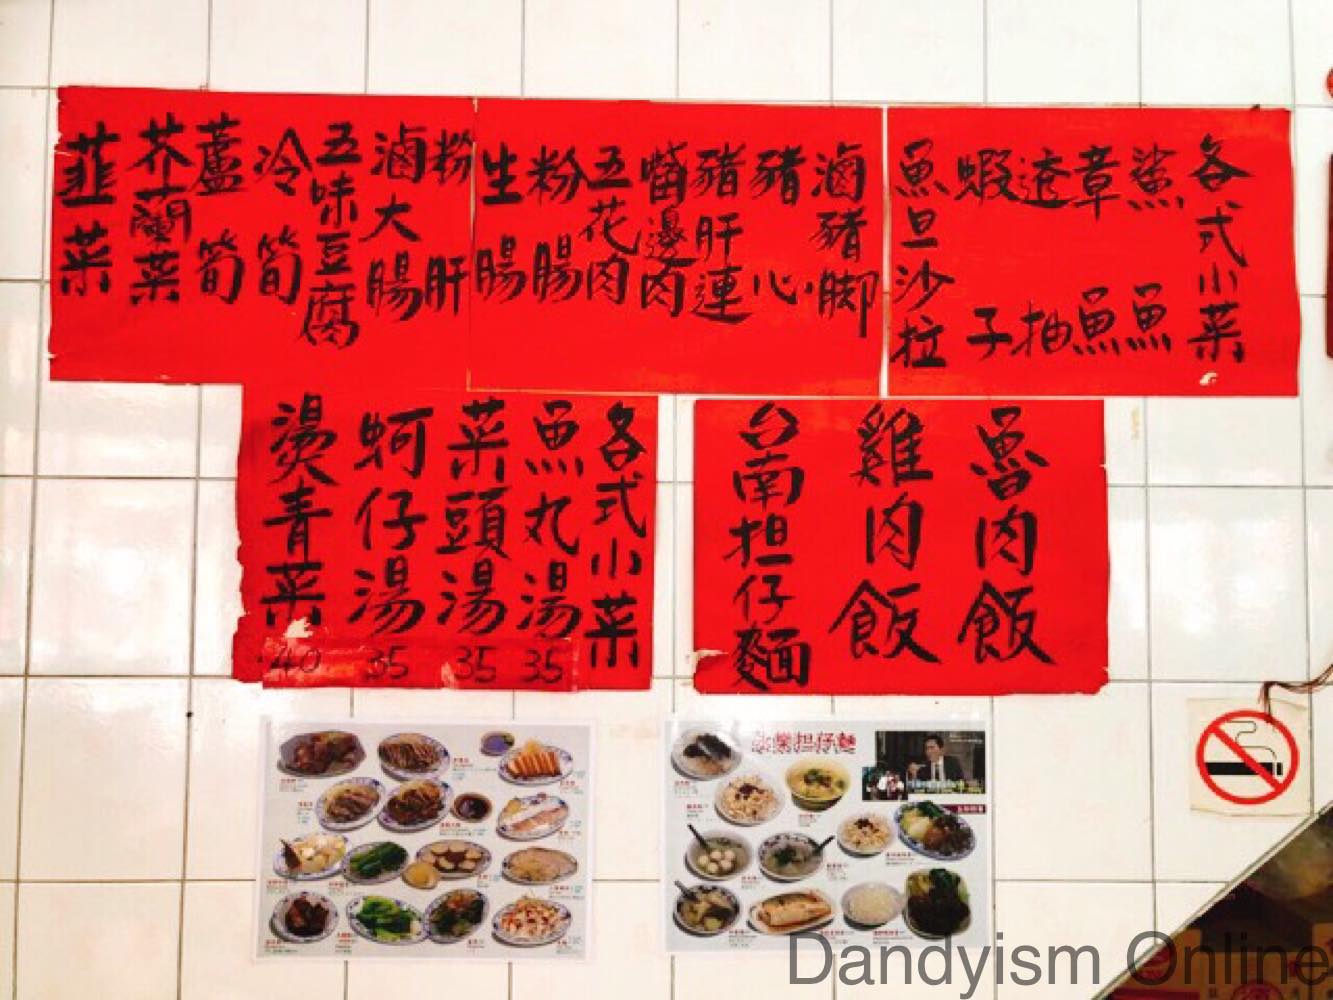 各式小菜
鯊魚
章魚
透抽
蝦子
魚旦沙拉
滷豬脚
豬心
豬肝連
嘴邊肉
五花肉
粉腸
生腸
粉肝
滷大腸
五味豆腐
冷筍
蘆筍
芥蘭菜
韮菜
魯肉飯
雞肉飯
台南担仔麵
各式小菜
魚丸湯 35
菜頭湯 35
蚵仔湯 35
燙青菜 40
永樂担仔麵
Dandyism Online